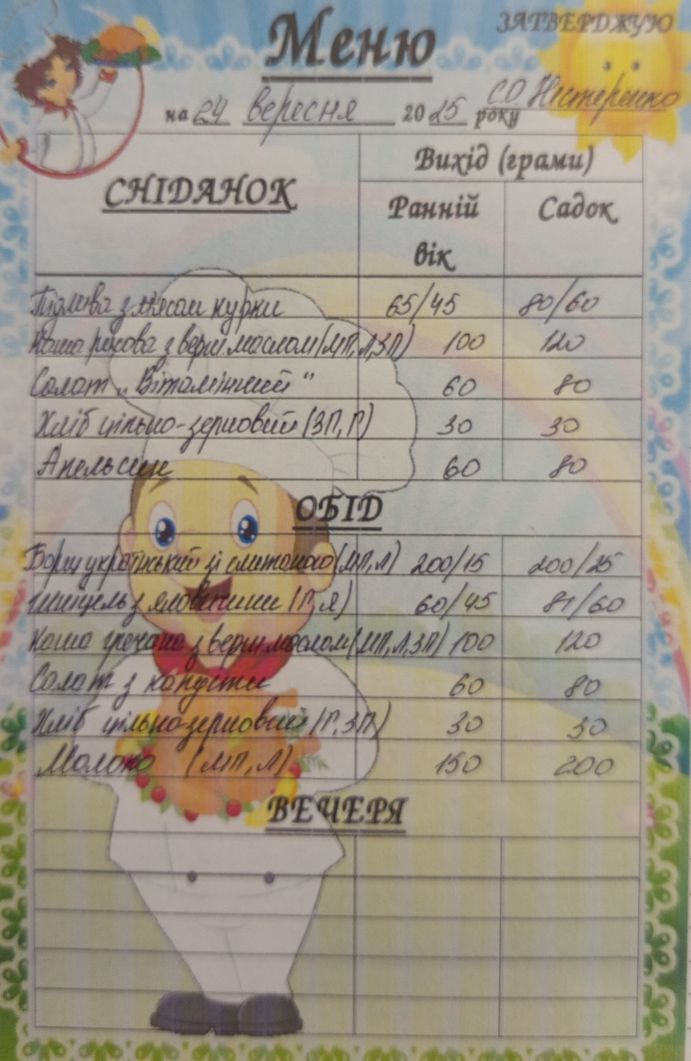 ЗАТВЕРДЖУЮ
Меню
на 24 вересня 2025 року С.О. Нестеренко
СНІДАНОК
Вихід (грами)
Ранній вік
Садок
Підлива з м'ясом курки 65/45 80/60
Каша рисова з верш маслом (МП, Л, ЗП) 100 120
Салат „Вітамінний" 60 80
Хліб цільно-зерновий (ЗП, Г) 30 30
Апельсин 60 80
ОБІД
Борщ український зі сметаною (МП, Л) 200/15 200/25
Шніцель з яловичини (Г, Я) 60/45 81/60
Каша гречана з верш маслом (МП, Л, ЗП) 100 120
Салат з капусти 60 80
Хліб цільно-зерновий (Г, ЗП) 30 30
Молоко (МП, Л) 150 200
ВЕЧЕРЯ